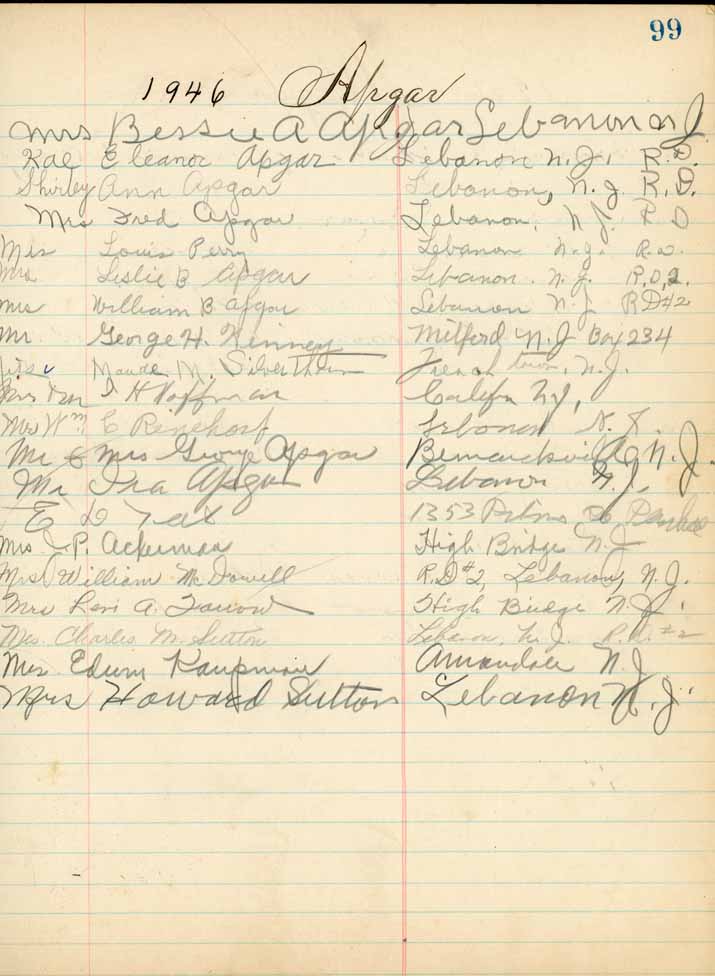 99
1946 Apgar
Mrs Bessie A Apgar Lebanon N J
Rae Eleanor Apgar Lebanon N. J. R.D.
Shirley Ann Apgar Lebanon, N. J. R. D.
Mrs Fred Apgar Lebanon, N J. R D
Mrs Louis Perry Lebanon N. J. R. D.
Mrs Leslie B Apgar Lebanon. N. J. R. D, 2.
Mrs William B Apgar Lebanon N J RD#2
Mr. George H. Kinney Milford N. J Box 234
Maude M. Silverthorn French town, N. J.
Mrs H Hoffman Califon N J,
Mrs Wm C Lebanon N. J.
Mr & Mrs George Apgar Bernardsville N. J.
Mr Ira Apgar Lebanon N. J.
E 1353
Mrs J. P. Ackerman High Bridge N J
Mrs William McDowell R. D #2, Lebanon, N. J.
Mrs Levi A. Farrow High Bridge N. J.
Mrs. Charles M. Sutton Lebanon, N. J. R. D. #2
Mrs Edwin Kaupman Annandale N. J
Mrs Howard Sutton Lebanon N. J.